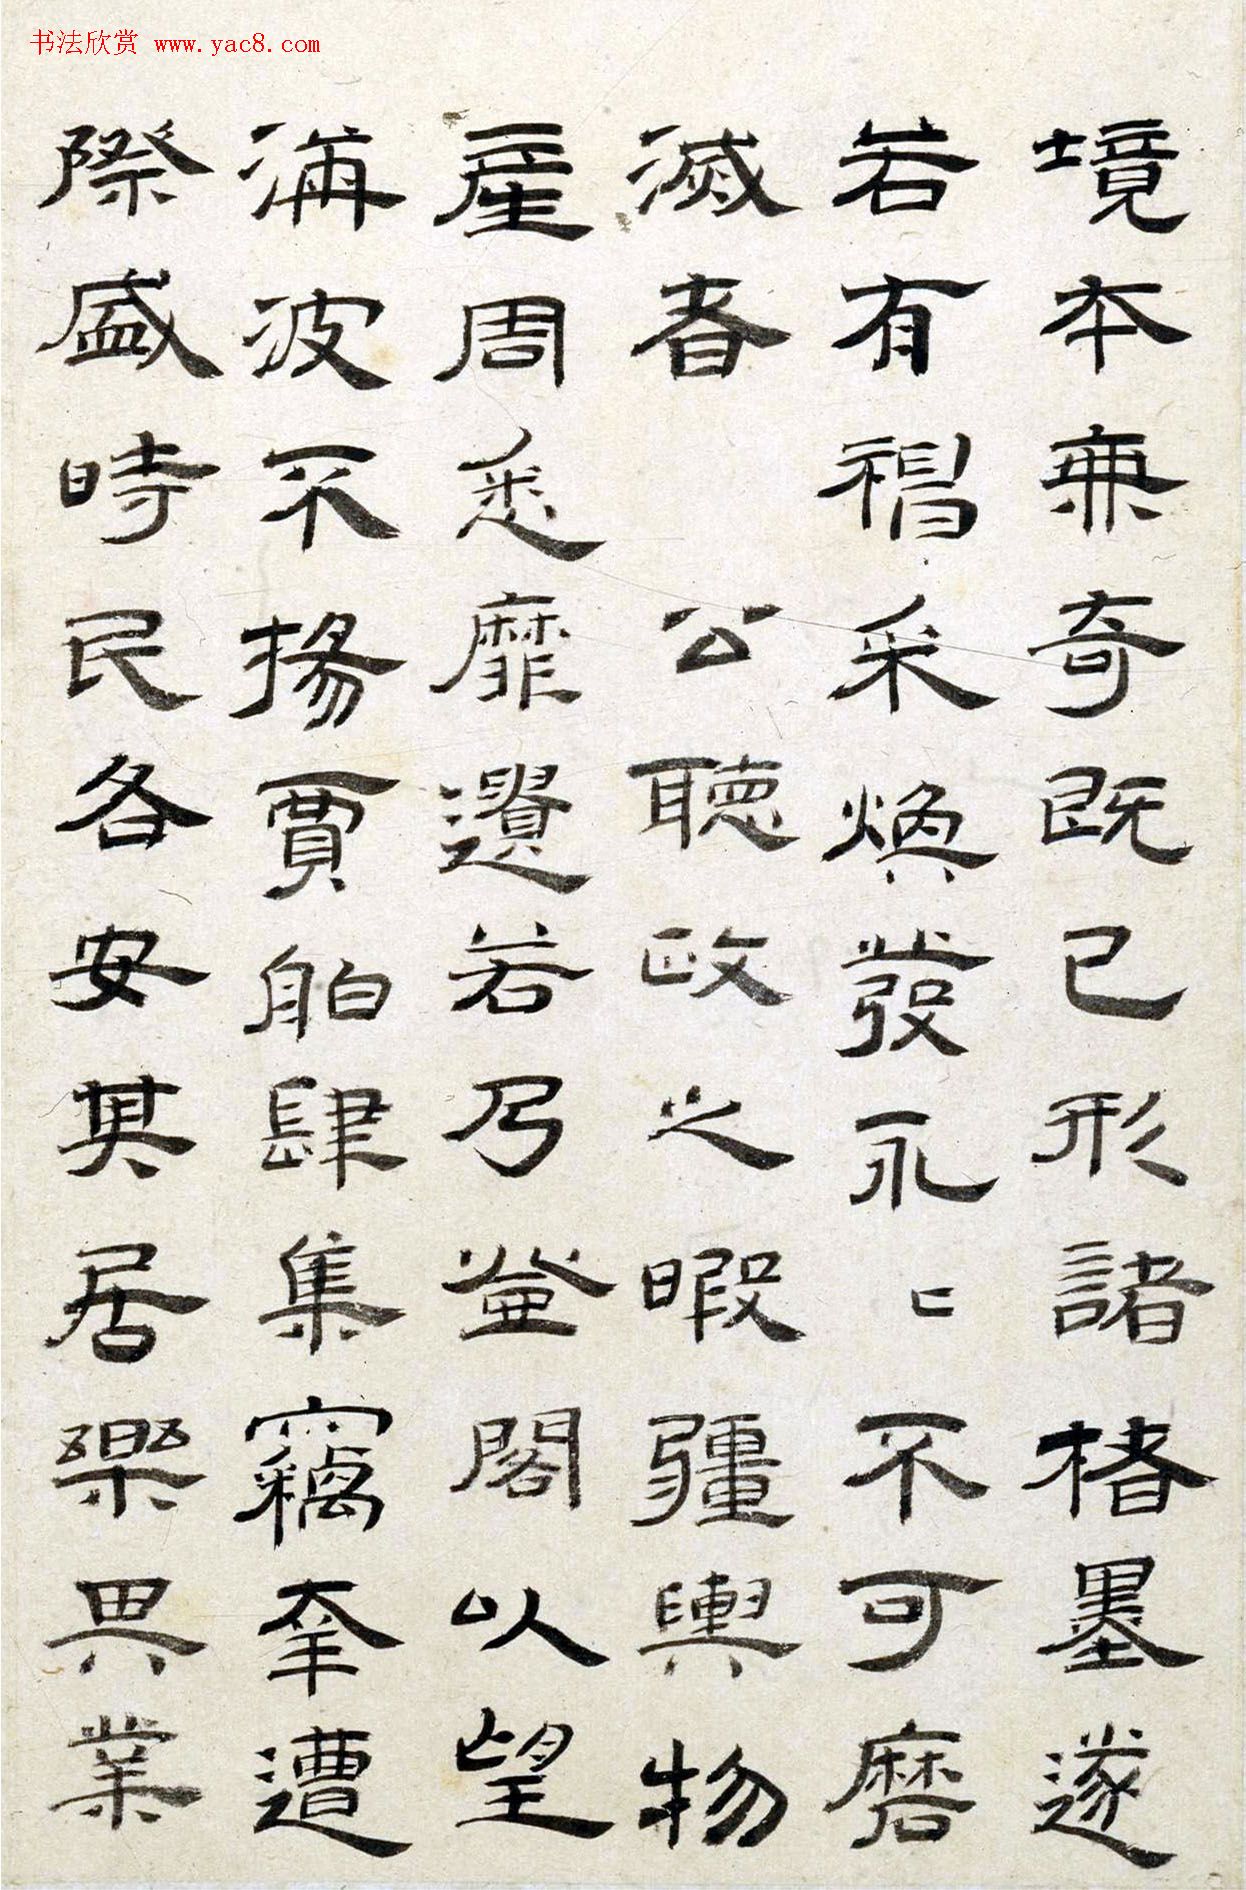 书法欣赏 www.yac8.com
境本兼奇既已形諸楮墨遂
若有神采煥發永〻不可磨
滅者 公聽政之暇疆輿物
產周悉靡遺若乃登閣以望
海波不揚賈舶肆集竊幸遭
際盛時民各安其居樂其業